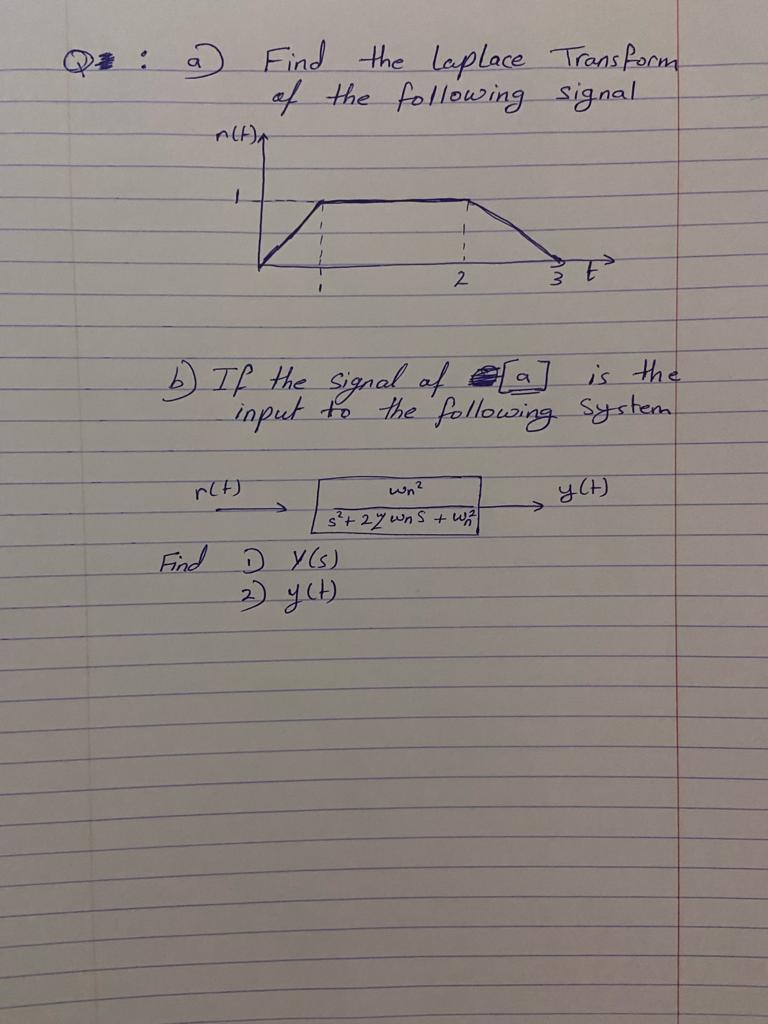 Q : a) Find the Laplace Transform
of the following signal
r(t)
1
1 2 3 t
b) If the signal of [a] is the
input to the following system
r(t) ωn² y(t)
s²+ 2ζωn s + ωn²
Find 1) Y(s)
2) y(t)